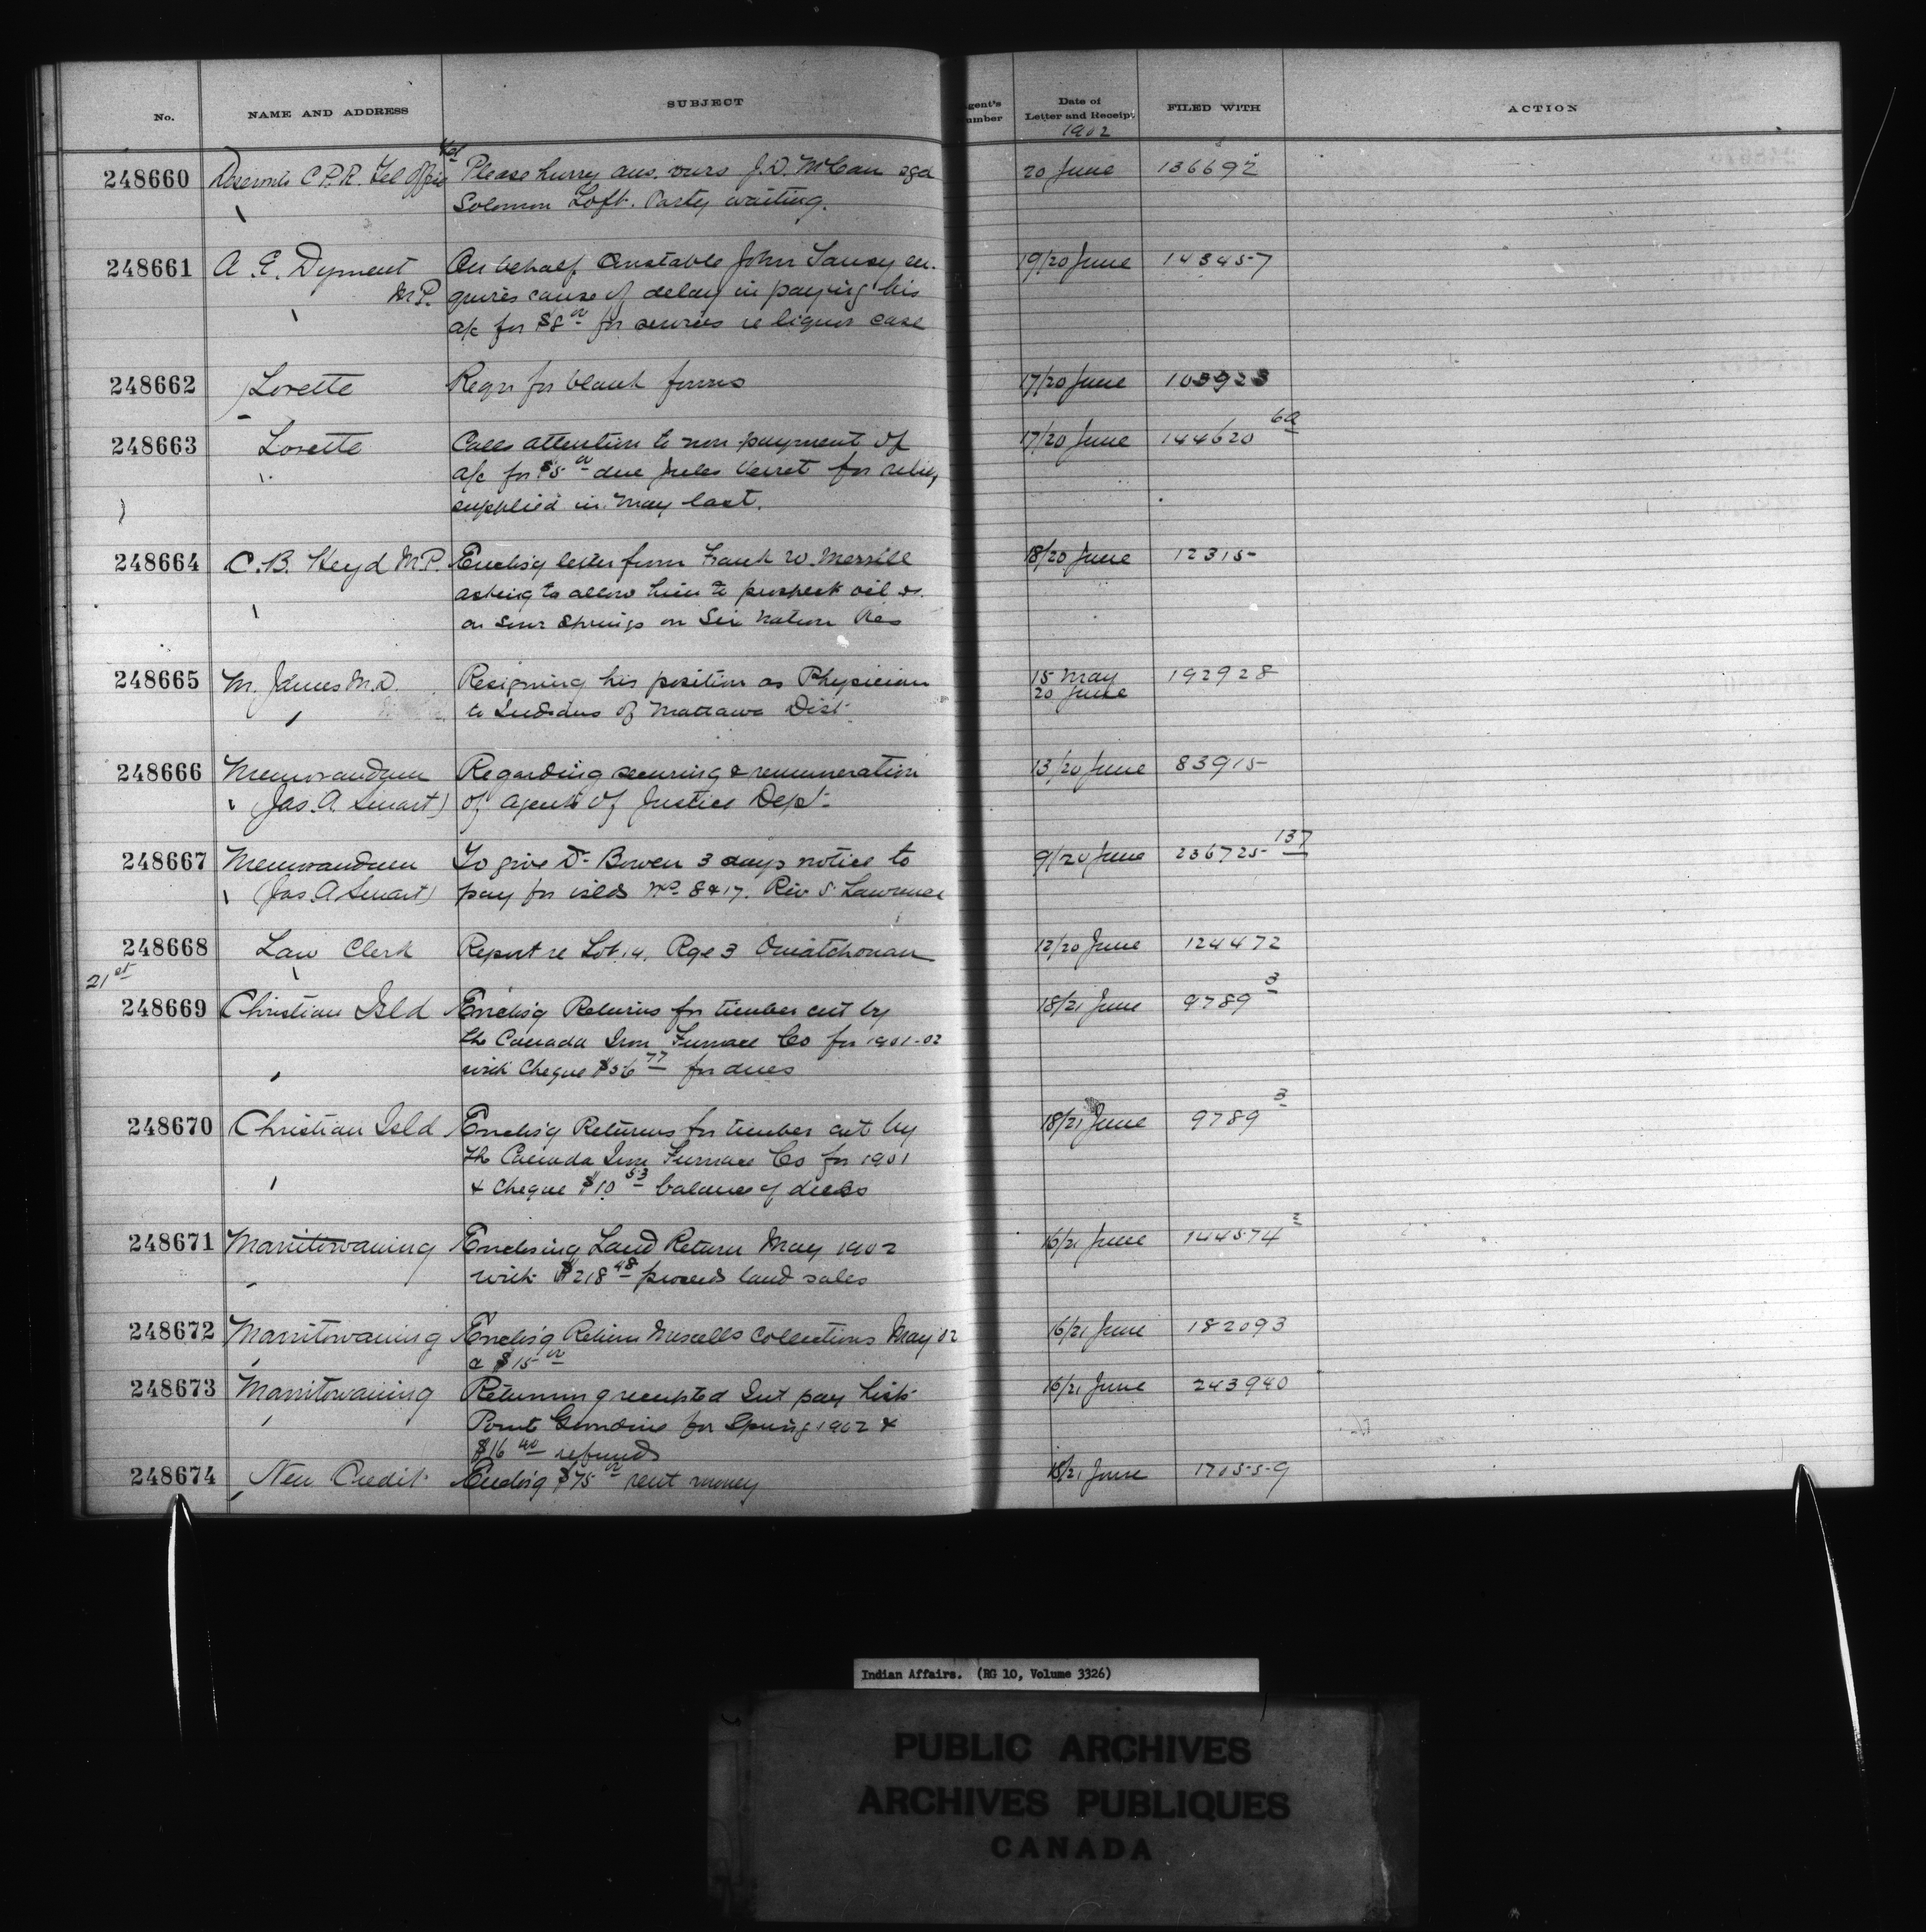 No. NAME AND ADDRESS SUBJECT gent's umber Date of Letter and Receipt FILED WITH ACTION
1902
248660 Deseronto C.P.R. Tel Office Please hurry ans. ours J.D. McCan sgd 20 June 136692
Solomon Loft. Party waiting.
248661 A. E. Dyment On behalf Constable John Tansy en- 19/20 June 143457
M.P. quires cause of delay in paying his
a/c for $8 00 for services re liquor case
248662 Lorette Reqn for blank forms 17/20 June 103923
248663 Lorette Calls attention to non payment of 17/20 June 144620 6a
a/c for $5 00 due Jules Verret for relief
supplied in May last.
248664 C. B. Heyd M.P. Enclos'g letter from Frank W. Merrill 18/20 June 12315
asking to allow him to prospect oil &c.
on Sour Springs on Six Nation Res
248665 M. James M.D. Resigning his position as Physician 15 May
to Indians of Mattawa Dist. 20 June 192928
248666 Memorandum Regarding securing & remuneration 13/20 June 83915
(Jas. A. Smart) of agents of Justice Dept.
248667 Memorandum To give Dr Bowen 3 days notice to 9/20 June 236725 137
(Jas. A. Smart) pay for islds Nos 8 & 17. Riv S. Lawrence
248668 Law Clerk Report re Lot 14, Rge 3 Ouiatchouan 12/20 June 124472
21st
248669 Christian Isld Enclos'g Returns for timber cut by 18/21 June 9789 3
the Canada Iron Furnace Co for 1901-02
with Cheque $56 77 for dues
248670 Christian Isld Enclos'g Returns for timber cut by 18/21 June 9789 3
the Canada Iron Furnace Co for 1901
& Cheque $10 53 balance of dues
248671 Manitowaning Enclosing Land Return May 1902 16/21 June 144574 2
with $218 48 proceeds land sales
248672 Manitowaning Enclos'g Return Miscells Collections May 02 16/21 June 182093
a $15 00
248673 Manitowaning Returning receipted Int pay list 16/21 June 243940
Point Grondine for Spring 1902 &
$16 40 refunds
248674 New Credit Enclos'g $75 00 rent money 18/21 June 170559
Indian Affairs. (RG 10, Volume 3326)
PUBLIC ARCHIVES
ARCHIVES PUBLIQUES
CANADA